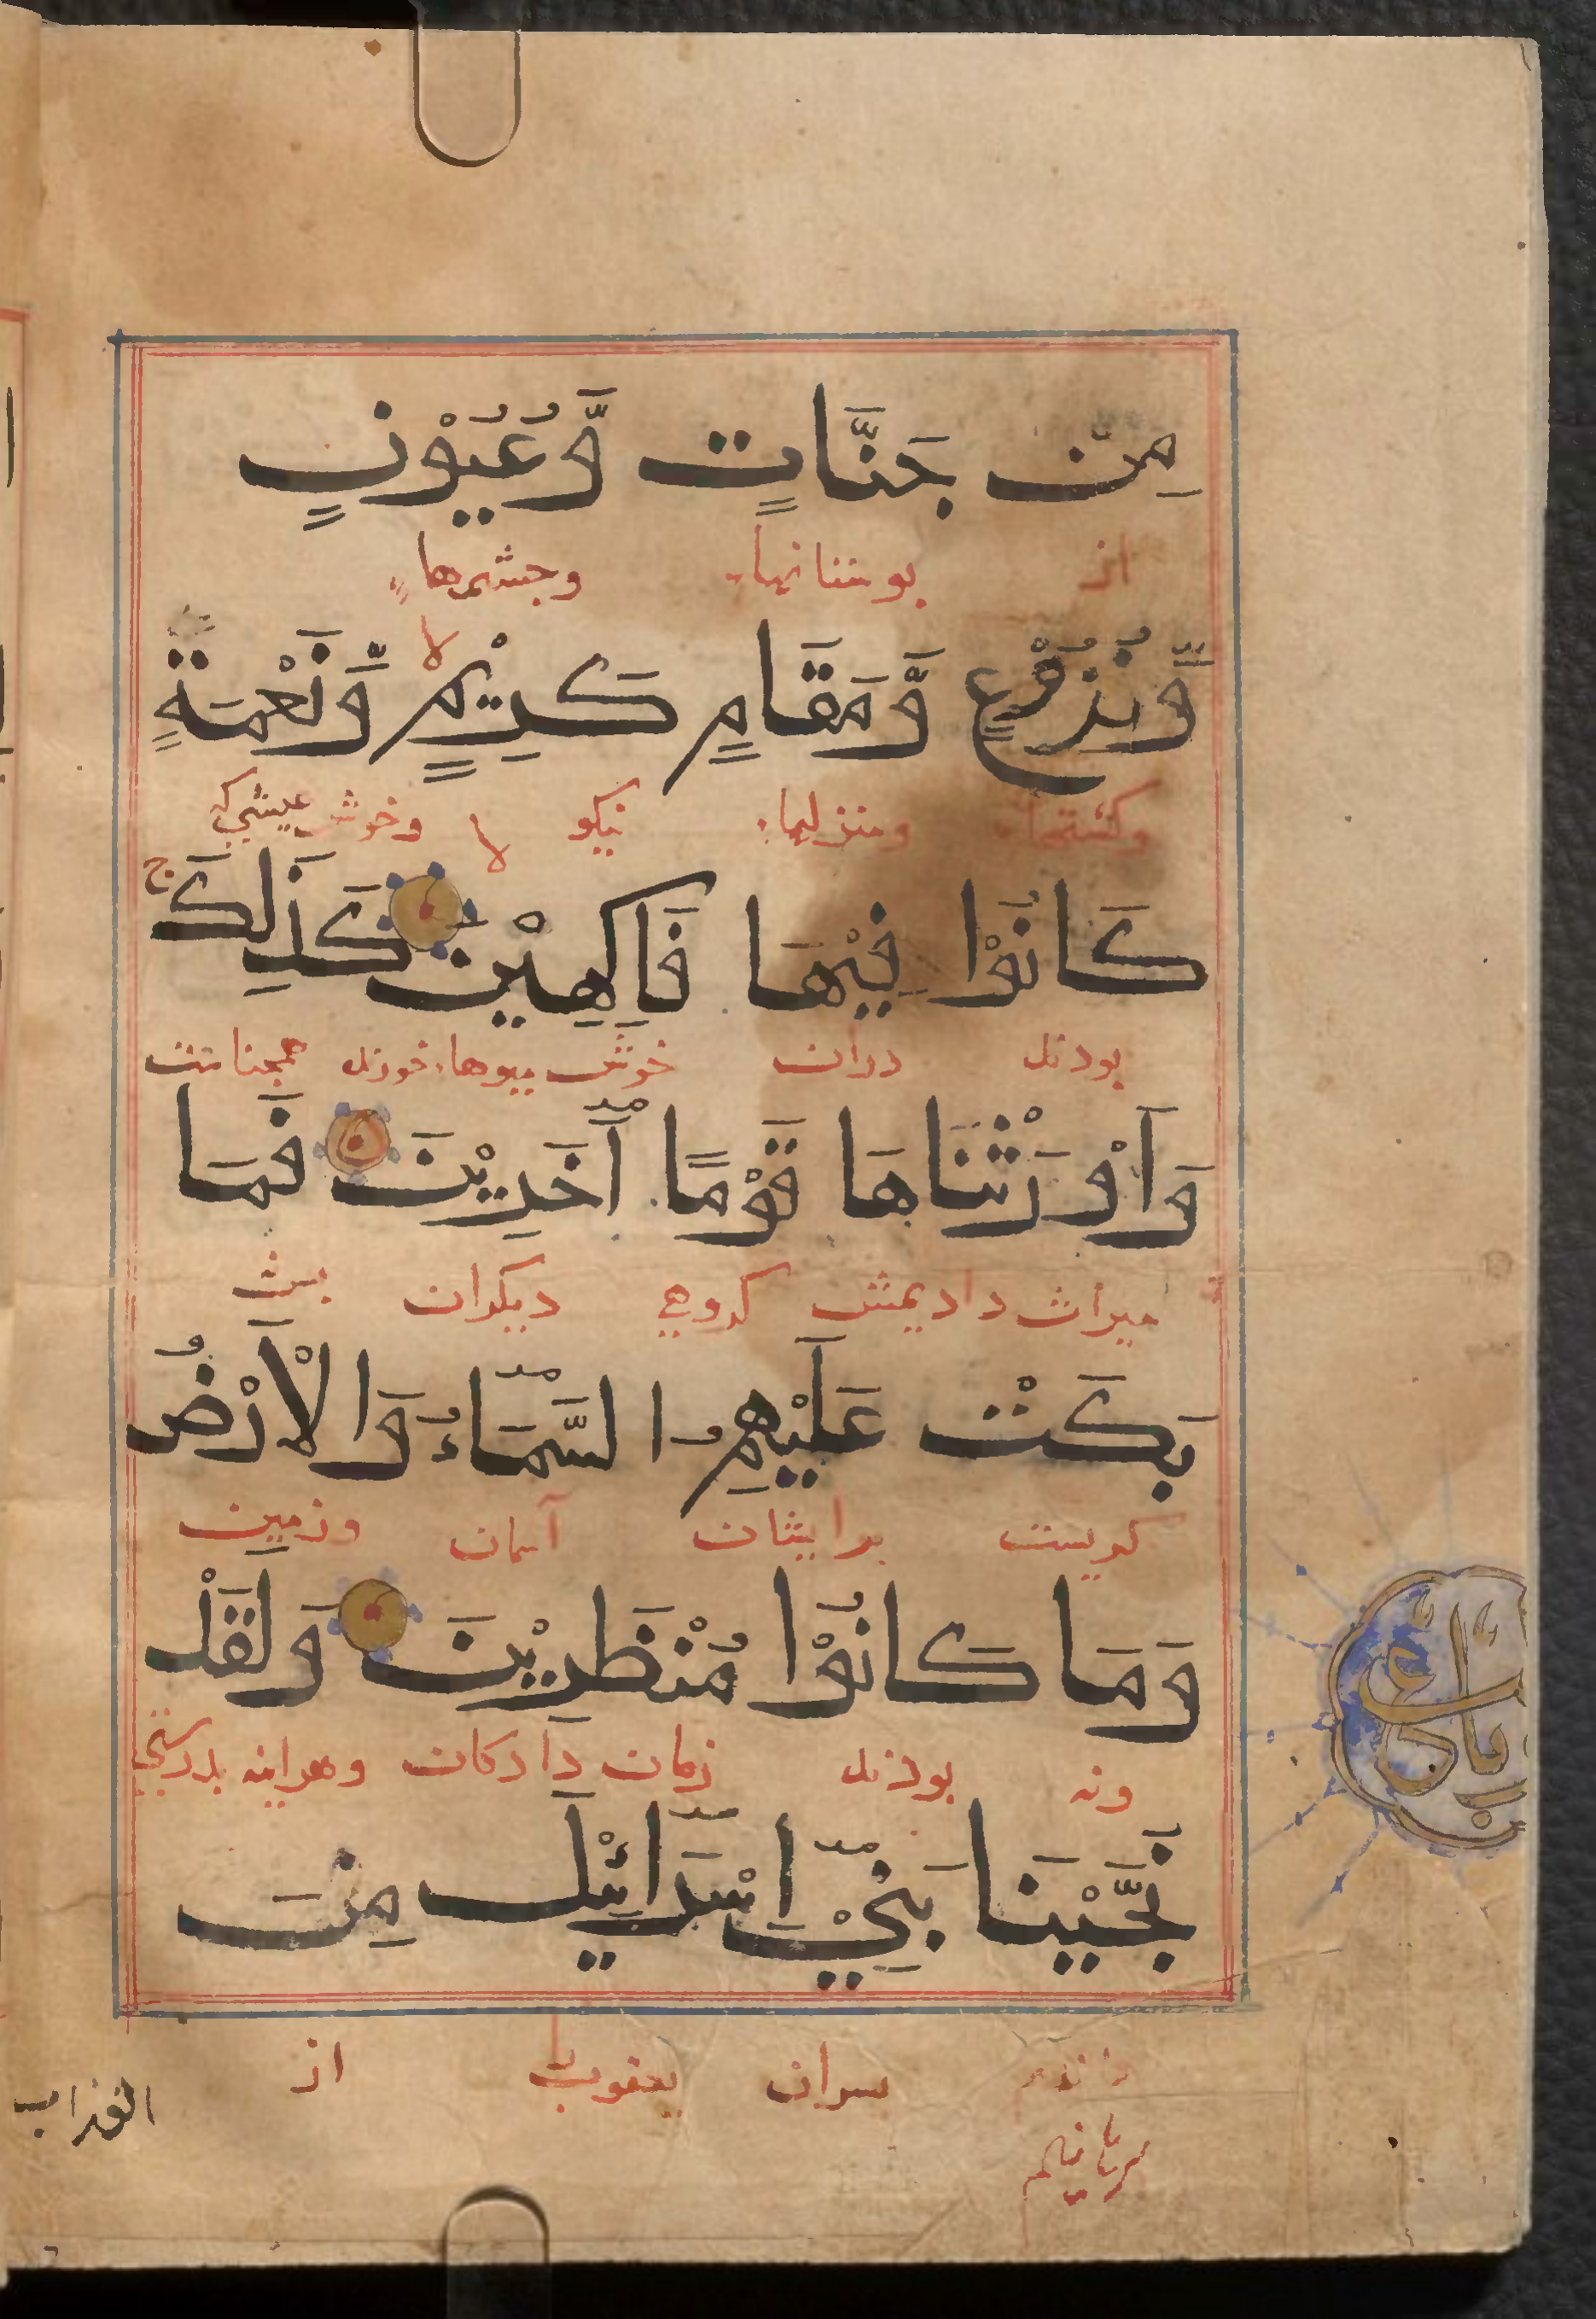 مِنْ جَنَّاتٍ وَّعُيُوْنٍ
از بوستانهاء وچشمرهاء
وَّزُرُوْعٍ وَّمَقَامٍ كَرِيْمٍ لا وَّنَعْمَةٍ
وكشتهاء ومنزلهاء نيكو لا وخوش عيشي كه
كَانُوْا فِيْهَا فَاكِهِيْنَ كَذَلِكَ ج
بوذند دران خوش ميوها خورند همچنانست
وَاَوْرَثْنَاهَا قَوْمًا اٰخَرِيْنَ فَمَا
ميراث داديمش كروهي ديكران بس
بَكَتْ عَلَيْهِمُ السَّمَاءُ وَالْاَرْضُ
كريست برايشان آسمان وزمين
وَمَا كَانُوْا مُنْظَرِيْنَ وَلَقَدْ
ونه بوذند زمان دادكان وهراينه بدرستي
نَجَّيْنَا بَنِيْ اِسْرَائِيْلَ مِنَ
بسران يعقوب از
برهانيدم
العذاب